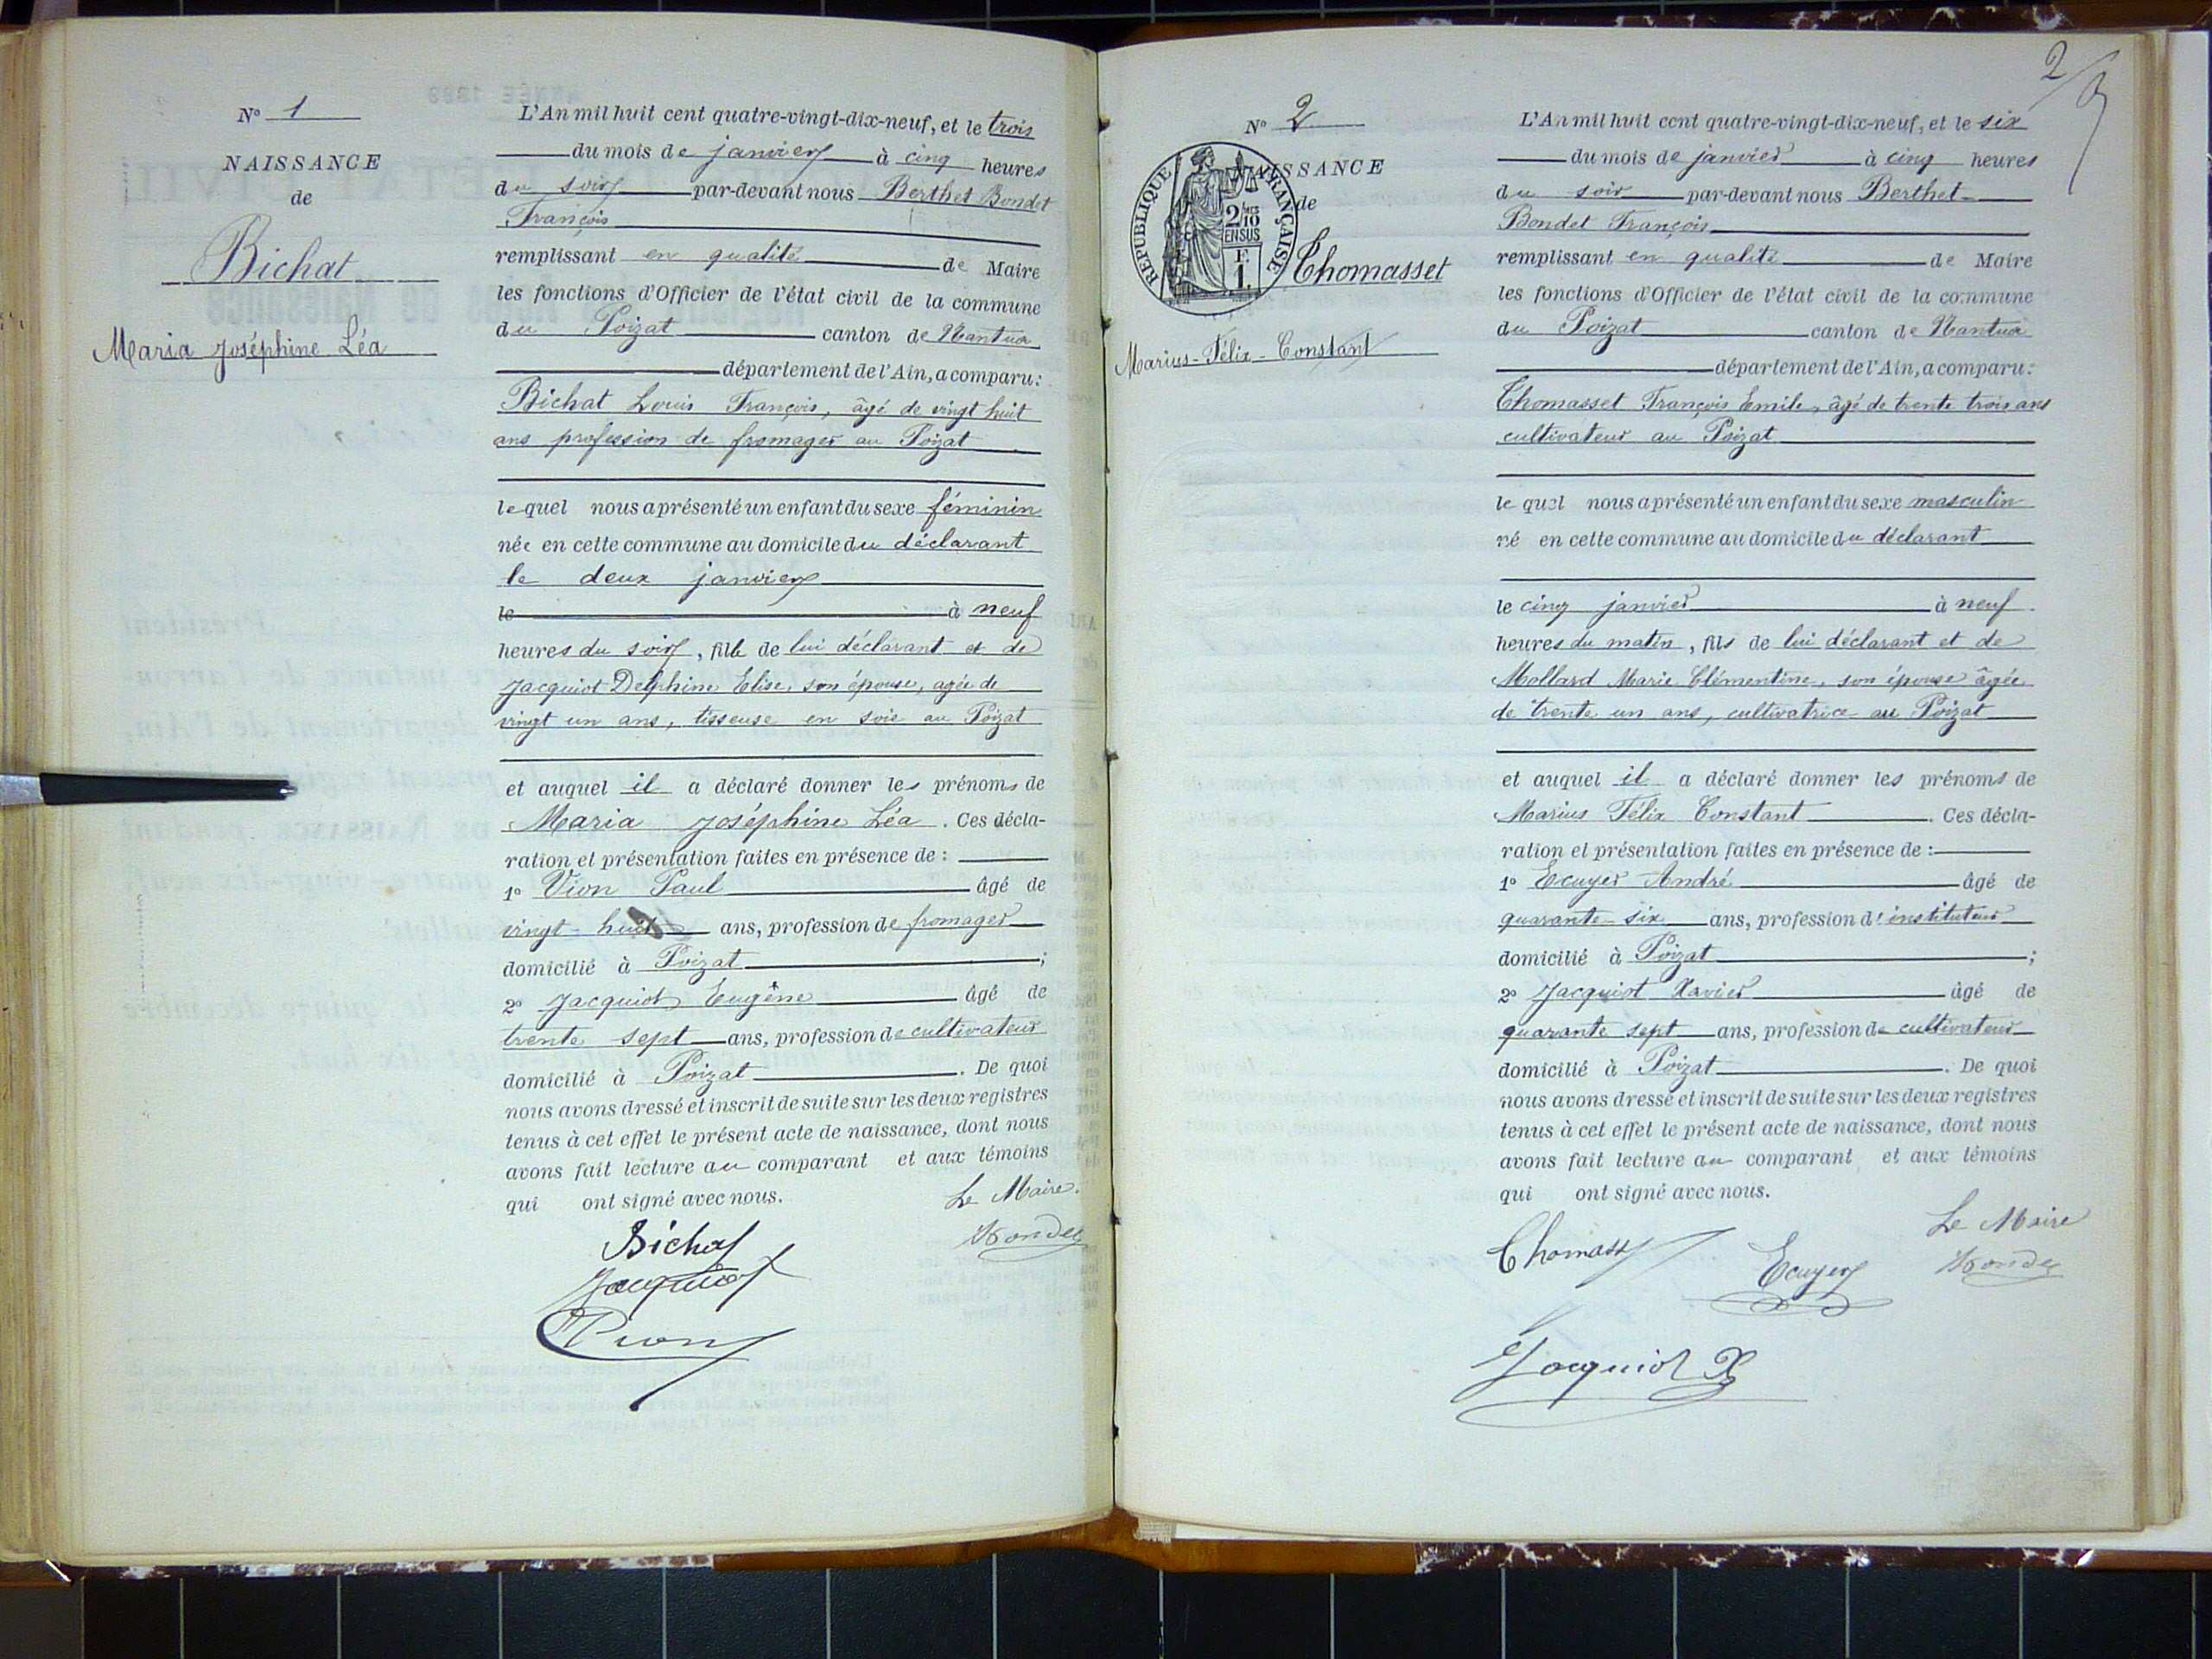 N° 1
NAISSANCE
de
Bichat
Maria Joséphine Léa
L'An mil huit cent quatre-vingt-dix-neuf, et le trois
du mois de janvier à cinq heures
du soir par-devant nous Berthet Bondet
François
remplissant en qualité de Maire
les fonctions d'Officier de l'état civil de la commune
du Poizat canton de Nantua
département de l'Ain, a comparu:
Bichat Louis François, âgé de vingt huit
ans profession de fromager au Poizat
lequel nous a présenté un enfant du sexe féminin
née en cette commune au domicile du déclarant
le deux janvier
le à neuf
heures du soir, fille de lui déclarant et de
Jacquiot Delphine Elise, son épouse, agée de
vingt un ans, tisseuse en soie au Poizat
et auquel il a déclaré donner les prénoms de
Maria Joséphine Léa. Ces décla-
ration et présentation faites en présence de :
1° Vion Paul âgé de
vingt-huit ans, profession de fromager
domicilié à Poizat ;
2° Jacquiot Eugène âgé de
trente sept ans, profession de cultivateur
domicilié à Poizat. De quoi
nous avons dressé et inscrit de suite sur les deux registres
tenus à cet effet le présent acte de naissance, dont nous
avons fait lecture au comparant et aux témoins
qui ont signé avec nous.
Le Maire.
Bichat
Bondet
Jacquiot
PVion
2
N° 2
NAISSANCE
de
RÉPUBLIQUE FRANÇAISE
2/10
EN SUS
F.
1.
Thomasset
Marius-Félix-Constant
L'An mil huit cent quatre-vingt-dix-neuf, et le six
du mois de janvier à cinq heures
du soir par-devant nous Berthet-
Bondet François
remplissant en qualité de Maire
les fonctions d'Officier de l'état civil de la commune
du Poizat canton de Nantua
département de l'Ain, a comparu:
Thomasset François Emile, âgé de trente trois ans
cultivateur au Poizat
lequel nous a présenté un enfant du sexe masculin
né en cette commune au domicile du déclarant
le cinq janvier à neuf
heures du matin, fils de lui déclarant et de
Mollard Marie Clémentine, son épouse âgée
de trente un ans, cultivatrice au Poizat
et auquel il a déclaré donner les prénoms de
Marius Félix Constant. Ces décla-
ration et présentation faites en présence de :
1° Ecuyer André âgé de
quarante-six ans, profession d'instituteur
domicilié à Poizat ;
2° Jacquiot Xavier âgé de
quarante sept ans, profession de cultivateur
domicilié à Poizat. De quoi
nous avons dressé et inscrit de suite sur les deux registres
tenus à cet effet le présent acte de naissance, dont nous
avons fait lecture au comparant et aux témoins
qui ont signé avec nous.
Le Maire
Thomasset
Ecuyer
Bondet
Jacquiot X